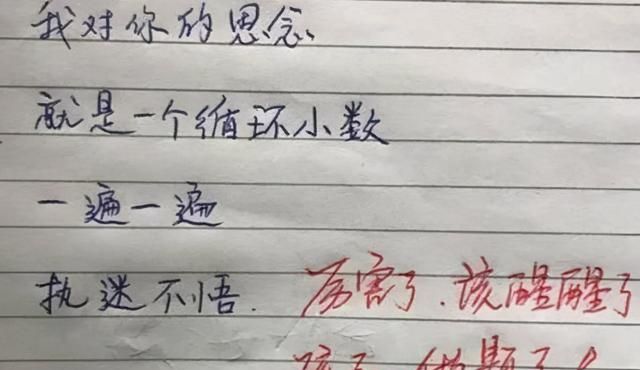 我对你的思念
就是一个循环小数
一遍一遍
执迷不悟. 厉害了,该醒醒了